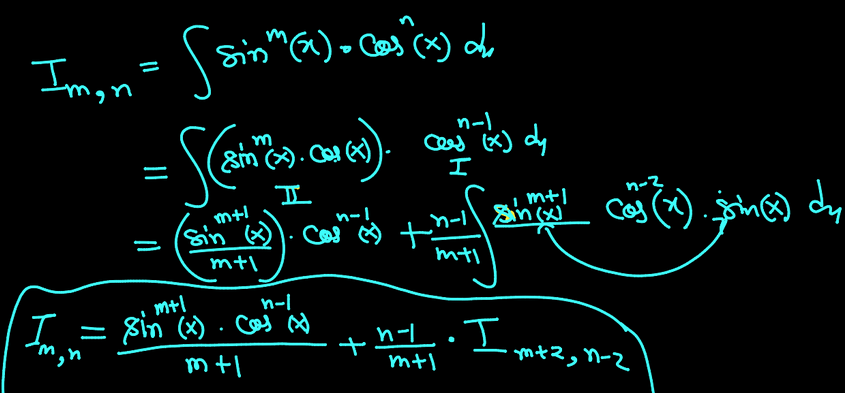 I_{m,n} = ∫ sin^m(x) · cos^n(x) dx
= ∫ (sin^m(x) · cos(x)) · cos^{n-1}(x) dx
II I
= (sin^{m+1}(x) / m+1) · cos^{n-1}(x) + n-1/m+1 ∫ sin^{m+1}(x) cos^{n-2}(x) · sin(x) dx
I_{m,n} = sin^{m+1}(x) · cos^{n-1}(x) / m+1 + n-1/m+1 · I_{m+2, n-2}